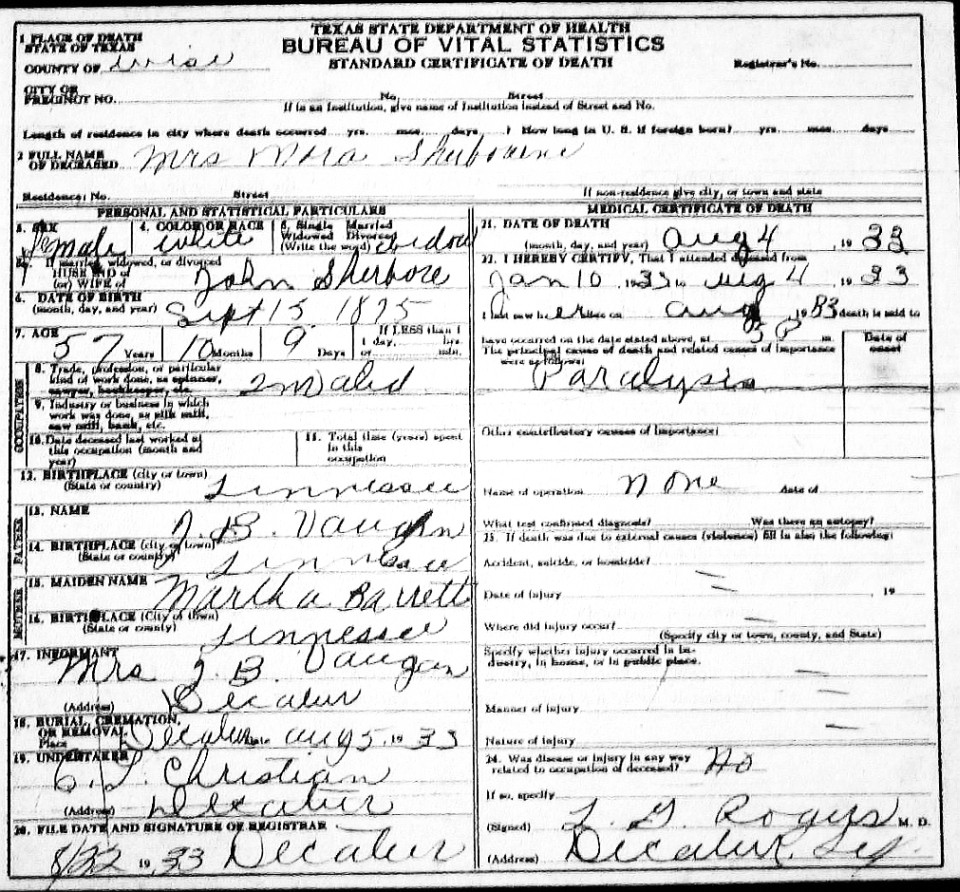 TEXAS STATE DEPARTMENT OF HEALTH
BUREAU OF VITAL STATISTICS
STANDARD CERTIFICATE OF DEATH
1 PLACE OF DEATH
STATE OF TEXAS
COUNTY OF Wise
Registrar's No.
CITY OR
PRECINCT NO. No. Street
If in an Institution, give name of Institution instead of Street and No.
Length of residence in city where death occurred yrs. mos. days ? How long in U. S. if foreign born? yrs. mos. days
2 FULL NAME
OF DECEASED Mrs Mora Sherbourne
Residence: No. Street If non-residence give city, or town and state
PERSONAL AND STATISTICAL PARTICULARS
3. SEX 4. COLOR OR RACE 5. Single Married
Widowed Divorced
(Write the word)
Female White Widow
If married, widowed, or divorced
HUSBAND of
(or) WIFE of John Sherbore
6. DATE OF BIRTH
(month, day, and year) Sept 15 1875
7. AGE 57 Years 10 Months 9 Days If LESS than 1
1 day, hrs.
or min.
OCCUPATION
8. Trade, profession, or particular
kind of work done, as spinner,
sawyer, bookkeeper, etc. Invalid
9. Industry or business in which
work was done, as silk mill,
saw mill, bank, etc.
10. Date deceased last worked at
this occupation (month and
year)
11. Total time (years) spent
in this
occupation
12. BIRTHPLACE (city or town)
(State or country) Tennessee
FATHER
13. NAME J. B. Vaughn
14. BIRTHPLACE (city or town)
(State or country) Tennessee
MOTHER
15. MAIDEN NAME Martha Barrett
16. BIRTHPLACE (City or town)
(State or county) Tennessee
17. INFORMANT
Mrs J. B. Vaugan
(Address) Decatur
18. BURIAL, CREMATION,
OR REMOVAL
Place Decatur Date Aug 5, 1933
19. UNDERTAKER
C. T. Christian
(Address) Decatur
20. FILE DATE AND SIGNATURE OF REGISTRAR
8/22 1933 Decatur
MEDICAL CERTIFICATE OF DEATH
21. DATE OF DEATH
(month, day, and year) Aug 4 1933
22. I HEREBY CERTIFY, That I attended deceased from
Jan 10 1933 to Aug 4 1933
I last saw her alive on Aug 1933 death is said to
have occurred on the date stated above, at m.
The principal cause of death and related causes of importance
were as follows: Date of
onset
Paralysis
Other contributory causes of importance:
Name of operation None date of
What test confirmed diagnosis? Was there an autopsy?
23. If death was due to external causes (violence) fill in also the following:
Accident, suicide, or homicide?
Date of injury , 19
Where did injury occur?
(Specify city or town, county, and State)
Specify whether injury occurred in in-
dustry, in home, or in public place.
Manner of injury
Nature of injury
24. Was disease or injury in any way
related to occupation of deceased? No
If so, specify
(Signed) L. G. Rogers M. D.
(Address) Decatur, Tex.